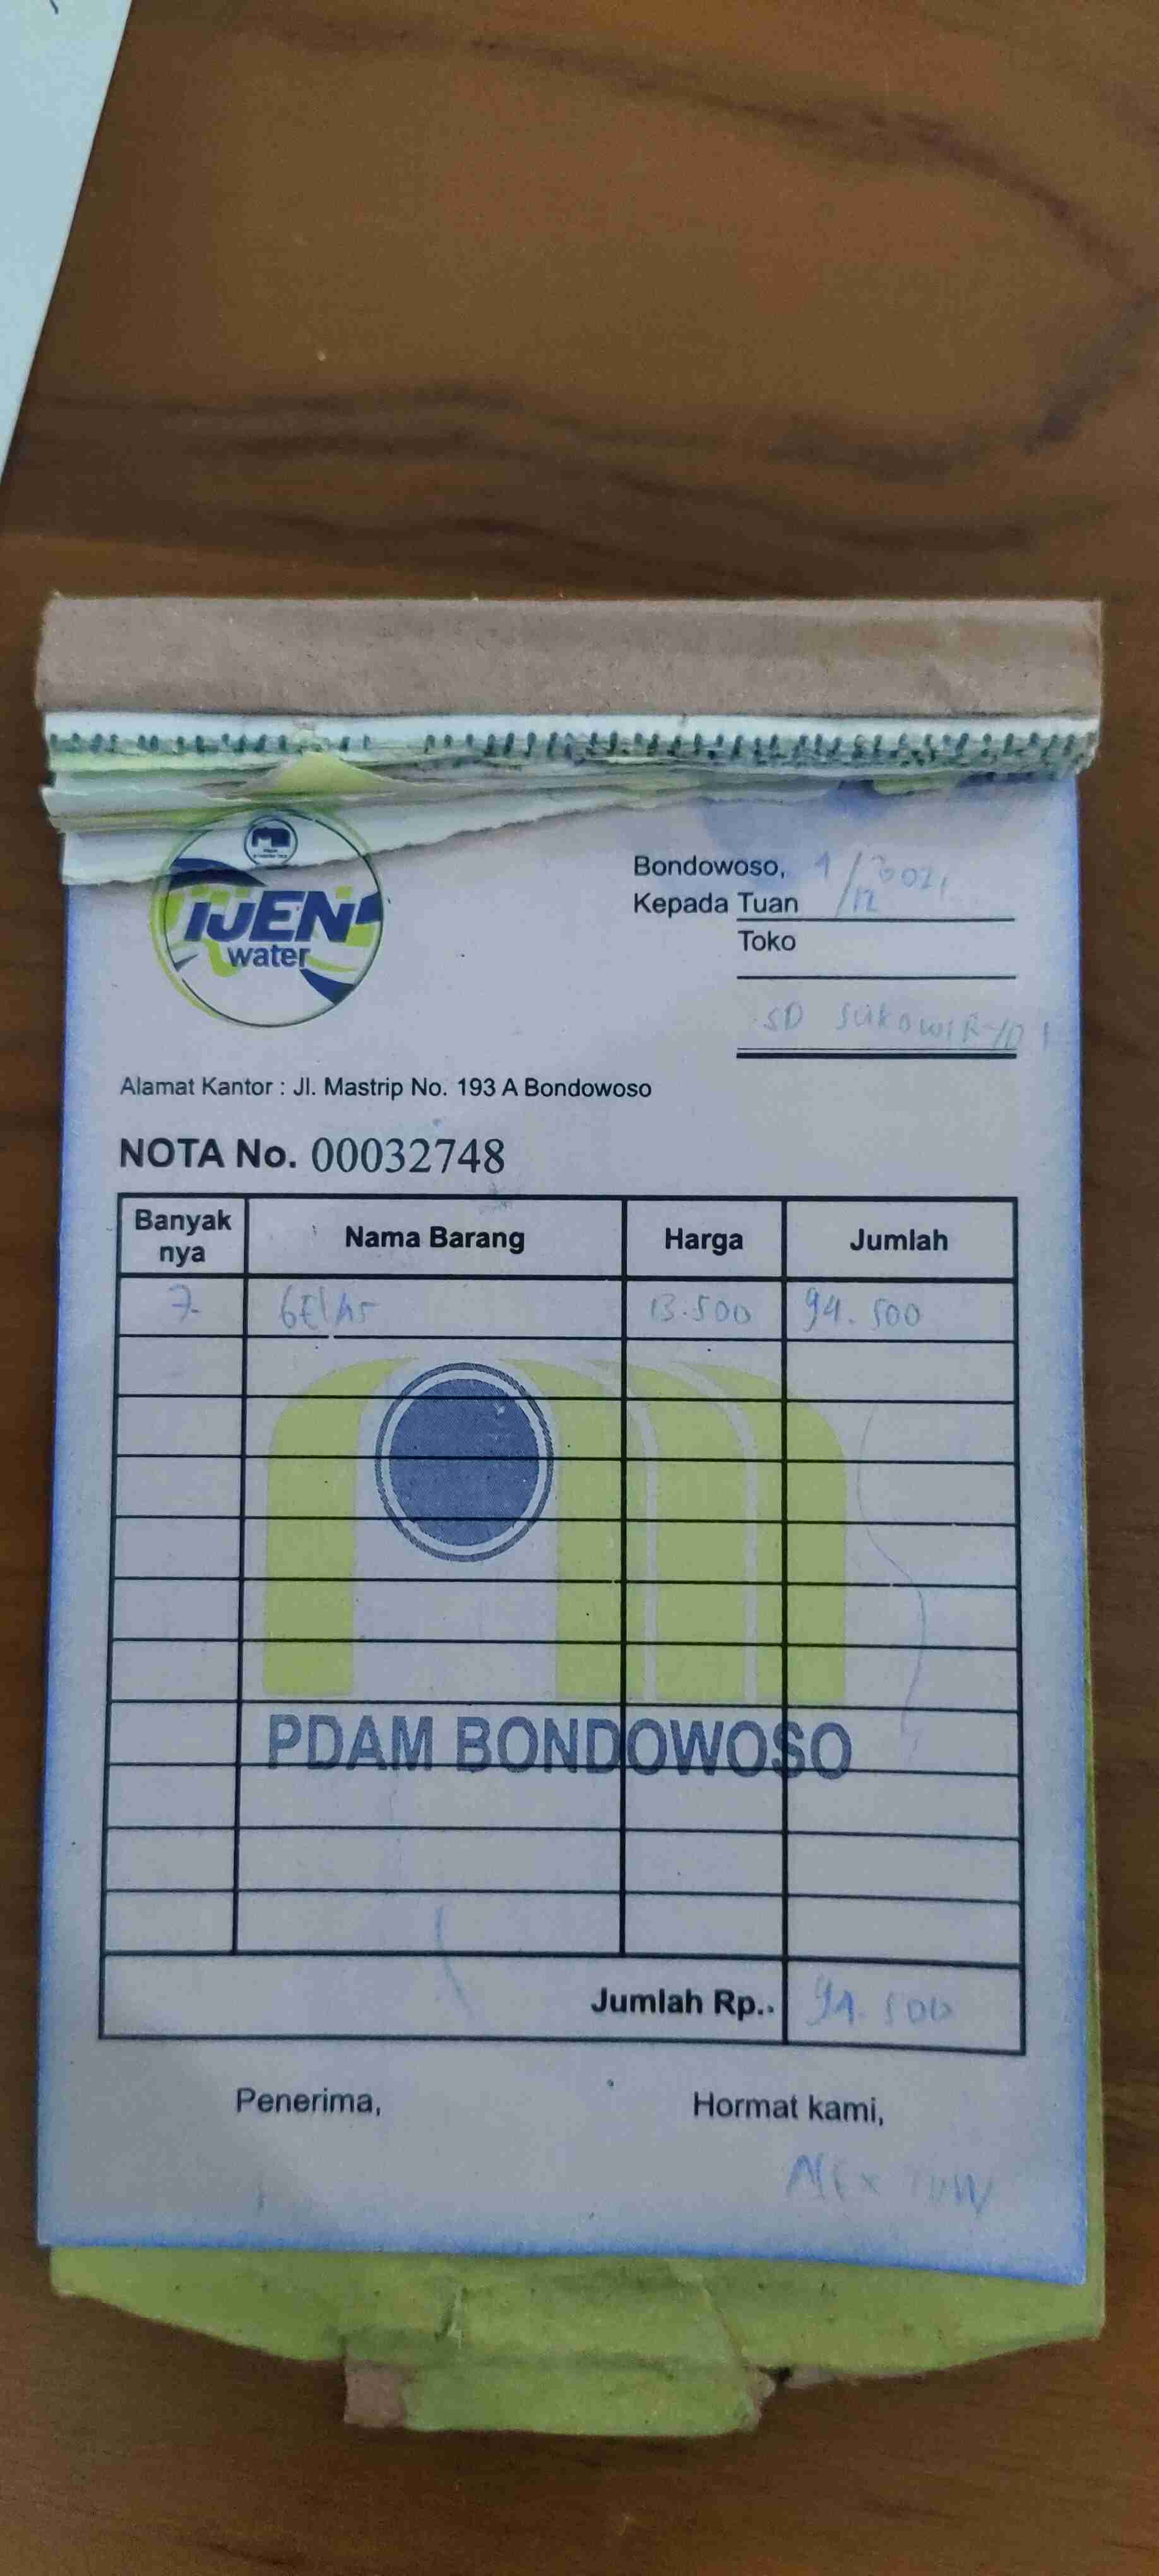 IJEN
water
Bondowoso, 1/12 2021
Kepada Tuan
Toko
SD SUKOWIRYO 1
Alamat Kantor : Jl. Mastrip No. 193 A Bondowoso
NOTA No. 00032748
Banyak nya Nama Barang Harga Jumlah
7 GELAS 13.500 94.500
PDAM BONDOWOSO
Jumlah Rp. 94.500
Penerima, Hormat kami,